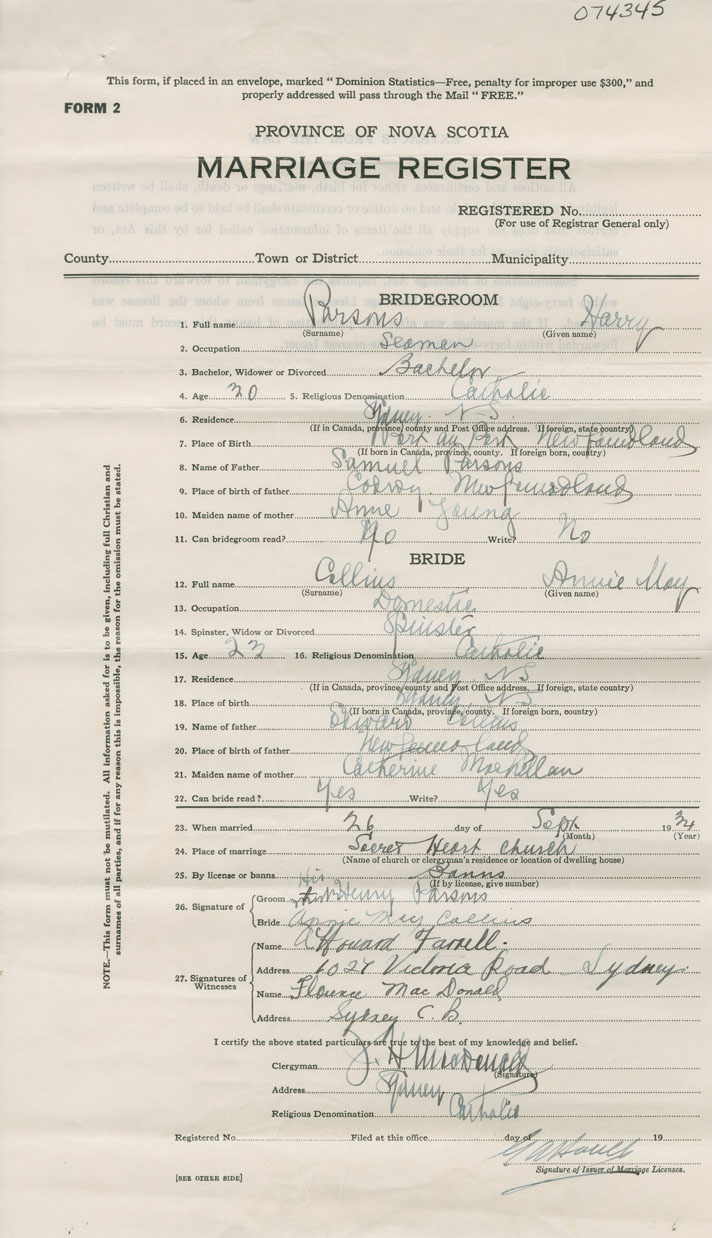 074345
This form, if placed in an envelope, marked “ Dominion Statistics—Free, penalty for improper use $300,” and
properly addressed will pass through the Mail “ FREE.”
FORM 2
PROVINCE OF NOVA SCOTIA
MARRIAGE REGISTER
REGISTERED No.
(For use of Registrar General only)
County Town or District Municipality
BRIDEGROOM
1. Full name Parsons Harry
(Surname) (Given name)
2. Occupation Seaman
3. Bachelor, Widower or Divorced Bachelor
4. Age 30 5. Religious Denomination Catholic
6. Residence Sydney. N-S.
(If in Canada, province, county and Post Office address. If foreign, state country)
7. Place of Birth Port au Port Newfoundland
(If born in Canada, province, county. If foreign born, country)
8. Name of Father Samuel Parsons
9. Place of birth of father Codroy. Newfoundland
10. Maiden name of mother Anne Young
11. Can bridegroom read? No Write? No
BRIDE
12. Full name Collins Annie May
(Surname) (Given name)
13. Occupation Domestic
14. Spinster, Widow or Divorced Spinster
15. Age 22 16. Religious Denomination Catholic
17. Residence Sydney N-S
(If in Canada, province, county and Post Office address. If foreign, state country)
18. Place of birth Sydney N-S
(If born in Canada, province, county. If foreign born, country)
19. Name of father Edward Collins
20. Place of birth of father Newfoundland
21. Maiden name of mother Catherine MacLellan
22. Can bride read? Yes Write? Yes
23. When married 26 day of Sept 1934
(Month) (Year)
24. Place of marriage Sacret Heart Church
(Name of church or clergyman's residence or location of dwelling house)
25. By license or banns Banns
(If by license, give number)
26. Signature of Groom His Henry Parsons
Bride Annie May Collins
27. Signatures of Witnesses
Name A Howard Farrell.
Address 1024 Victoria Road Sydney.
Name Florence Mac Donald
Address Sydney C.B.
I certify the above stated particulars are true to the best of my knowledge and belief.
Clergyman J. H MacDonald
(Signature)
Address Sydney
Religious Denomination Catholic
Registered No. Filed at this office day of 19
Signature of Issuer of Marriage Licenses.
[SEE OTHER SIDE]
NOTE.—This form must not be mutilated. All information asked for is to be given, including full Christian and
surnames of all parties, and if for any reason this is impossible, the reason for the omission must be stated.